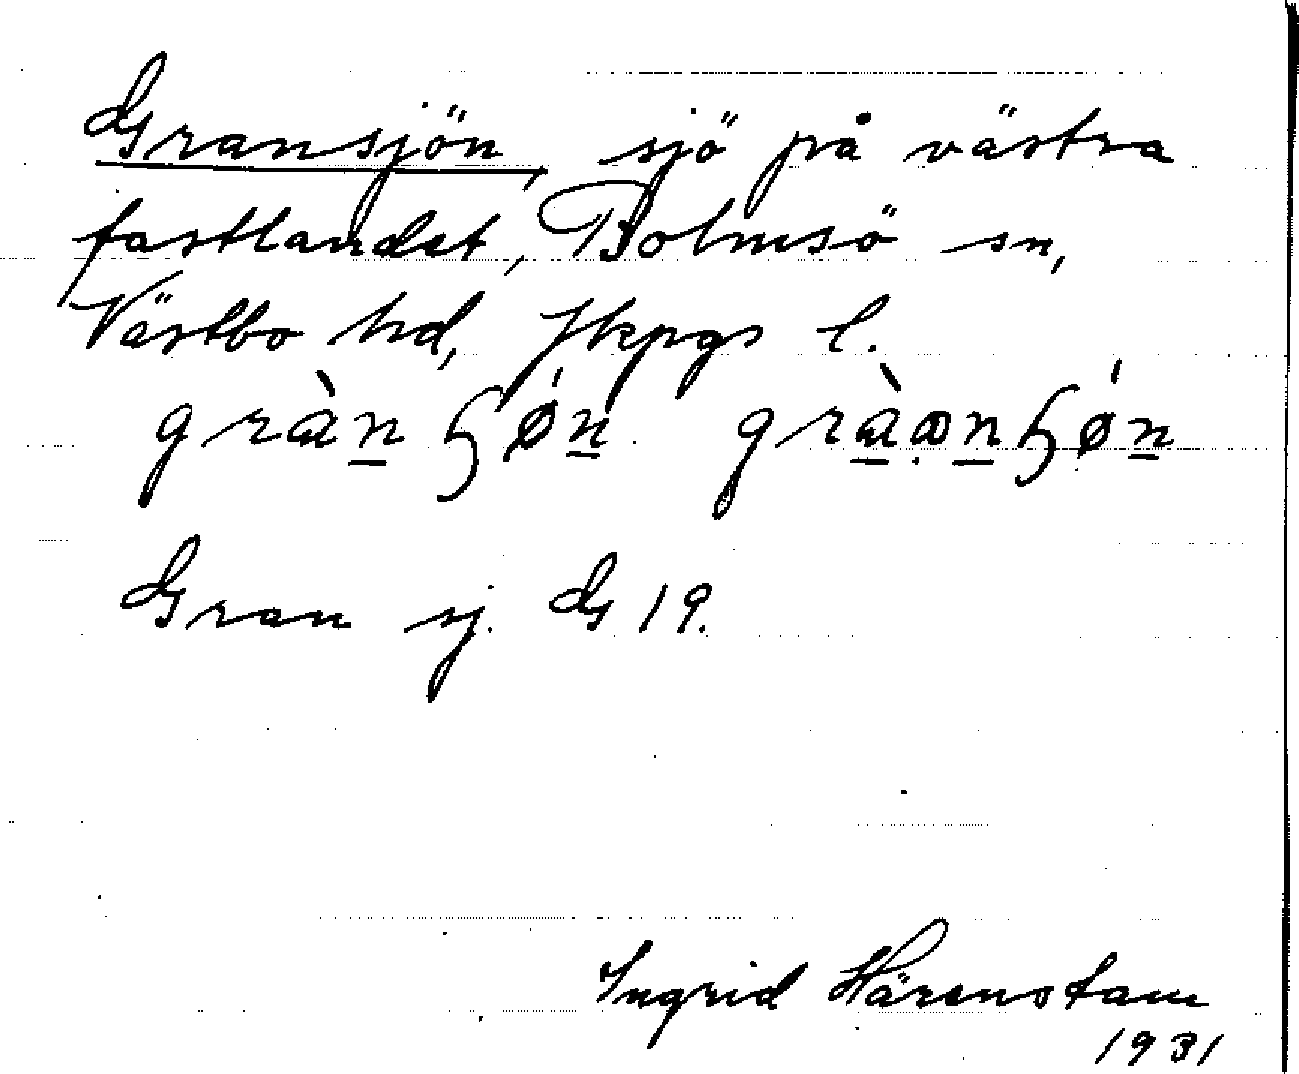 Gransjön, sjö på västra
fastlandet, Bolmsö sn,
Västbo hd, Jkpgs l.
gràn̲ɧǿn̲ grà̲ɷn̲ɧǿn̲
Gran sj. G 19.
Ingrid Härenstam
1931